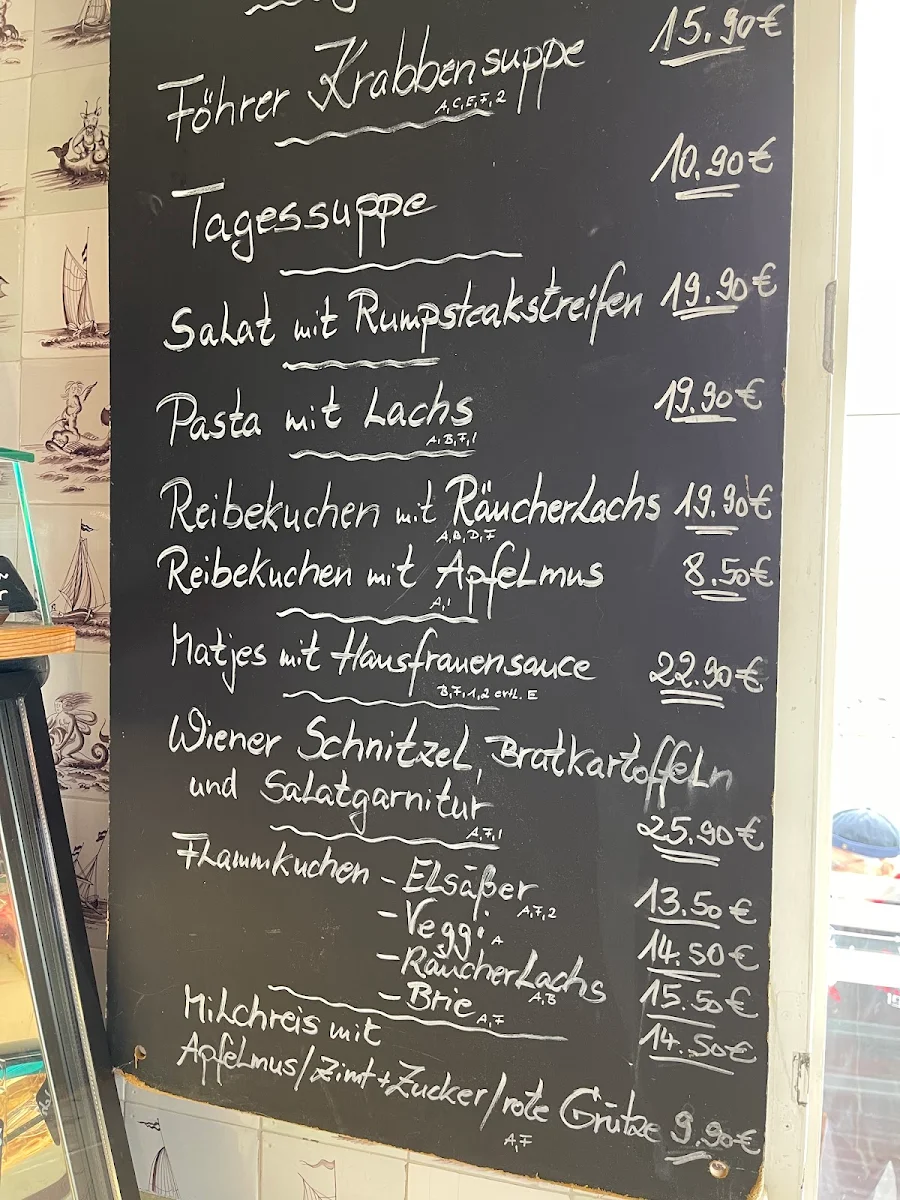 15.90€
Föhrer Krabbensuppe
A,C,E,F,2
10.90€
Tagessuppe
Salat mit Rumpsteakstreifen 19.90€
Pasta mit Lachs 19.90€
A,B,F,1
Reibekuchen mit Räucherlachs 19.90€
A,B,D,F
Reibekuchen mit Apfelmus 8.50€
A,1
Matjes mit Hausfrauensauce 22.90€
B,F,1,2 evtl. E
Wiener Schnitzel, Bratkartoffeln
und Salatgarnitur 25.90€
A,F,1
Flammkuchen - Elsäßer 13.50€
A,F,2
- Veggi 14.50€
A
- Räucherlachs 15.50€
A,B
- Brie 14.50€
A,F
Milchreis mit
Apfelmus/Zimt+Zucker/rote Grütze 9.90€
A,F